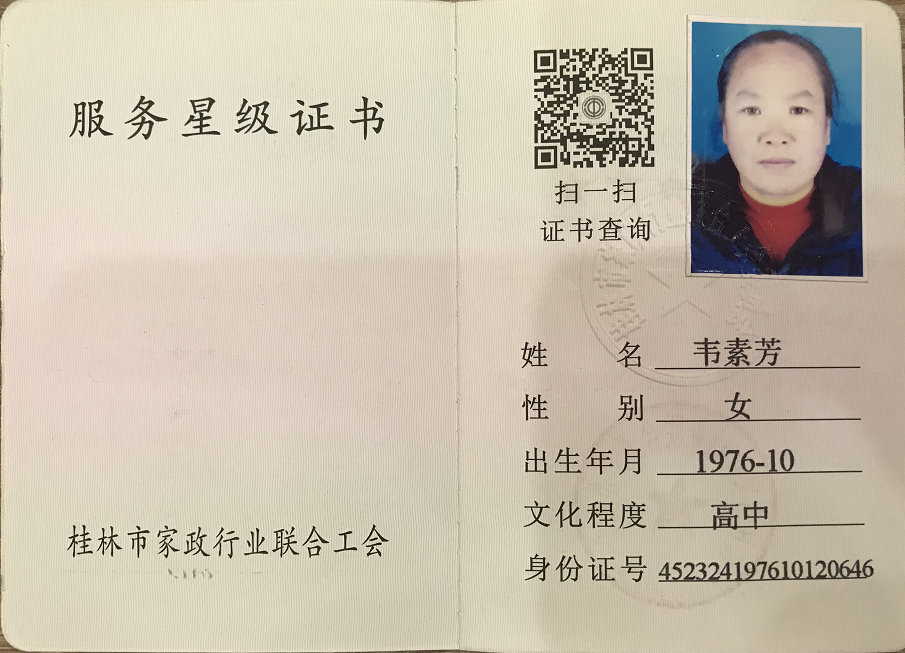 服务星级证书
桂林市家政行业联合工会
扫一扫
证书查询
姓名 韦素芳
性别 女
出生年月 1976-10
文化程度 高中
身份证号 452324197610120646